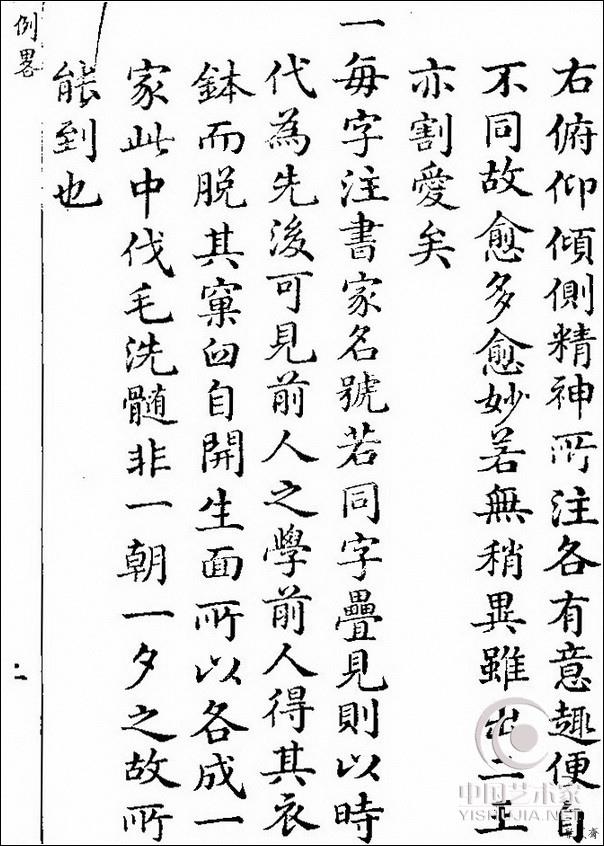 右俯仰傾側精神所注各有意趣便自
不同故愈多愈妙若無稍異雖出二王
亦割愛矣
一每字注書家名號若同字疊見則以時
代為先後可見前人之學前人得其衣
鉢而脫其窠臼自開生面所以各成一
家此中伐毛洗髓非一朝一夕之故所
能到也
例畧
中国艺术家
YISHUJIA.NET